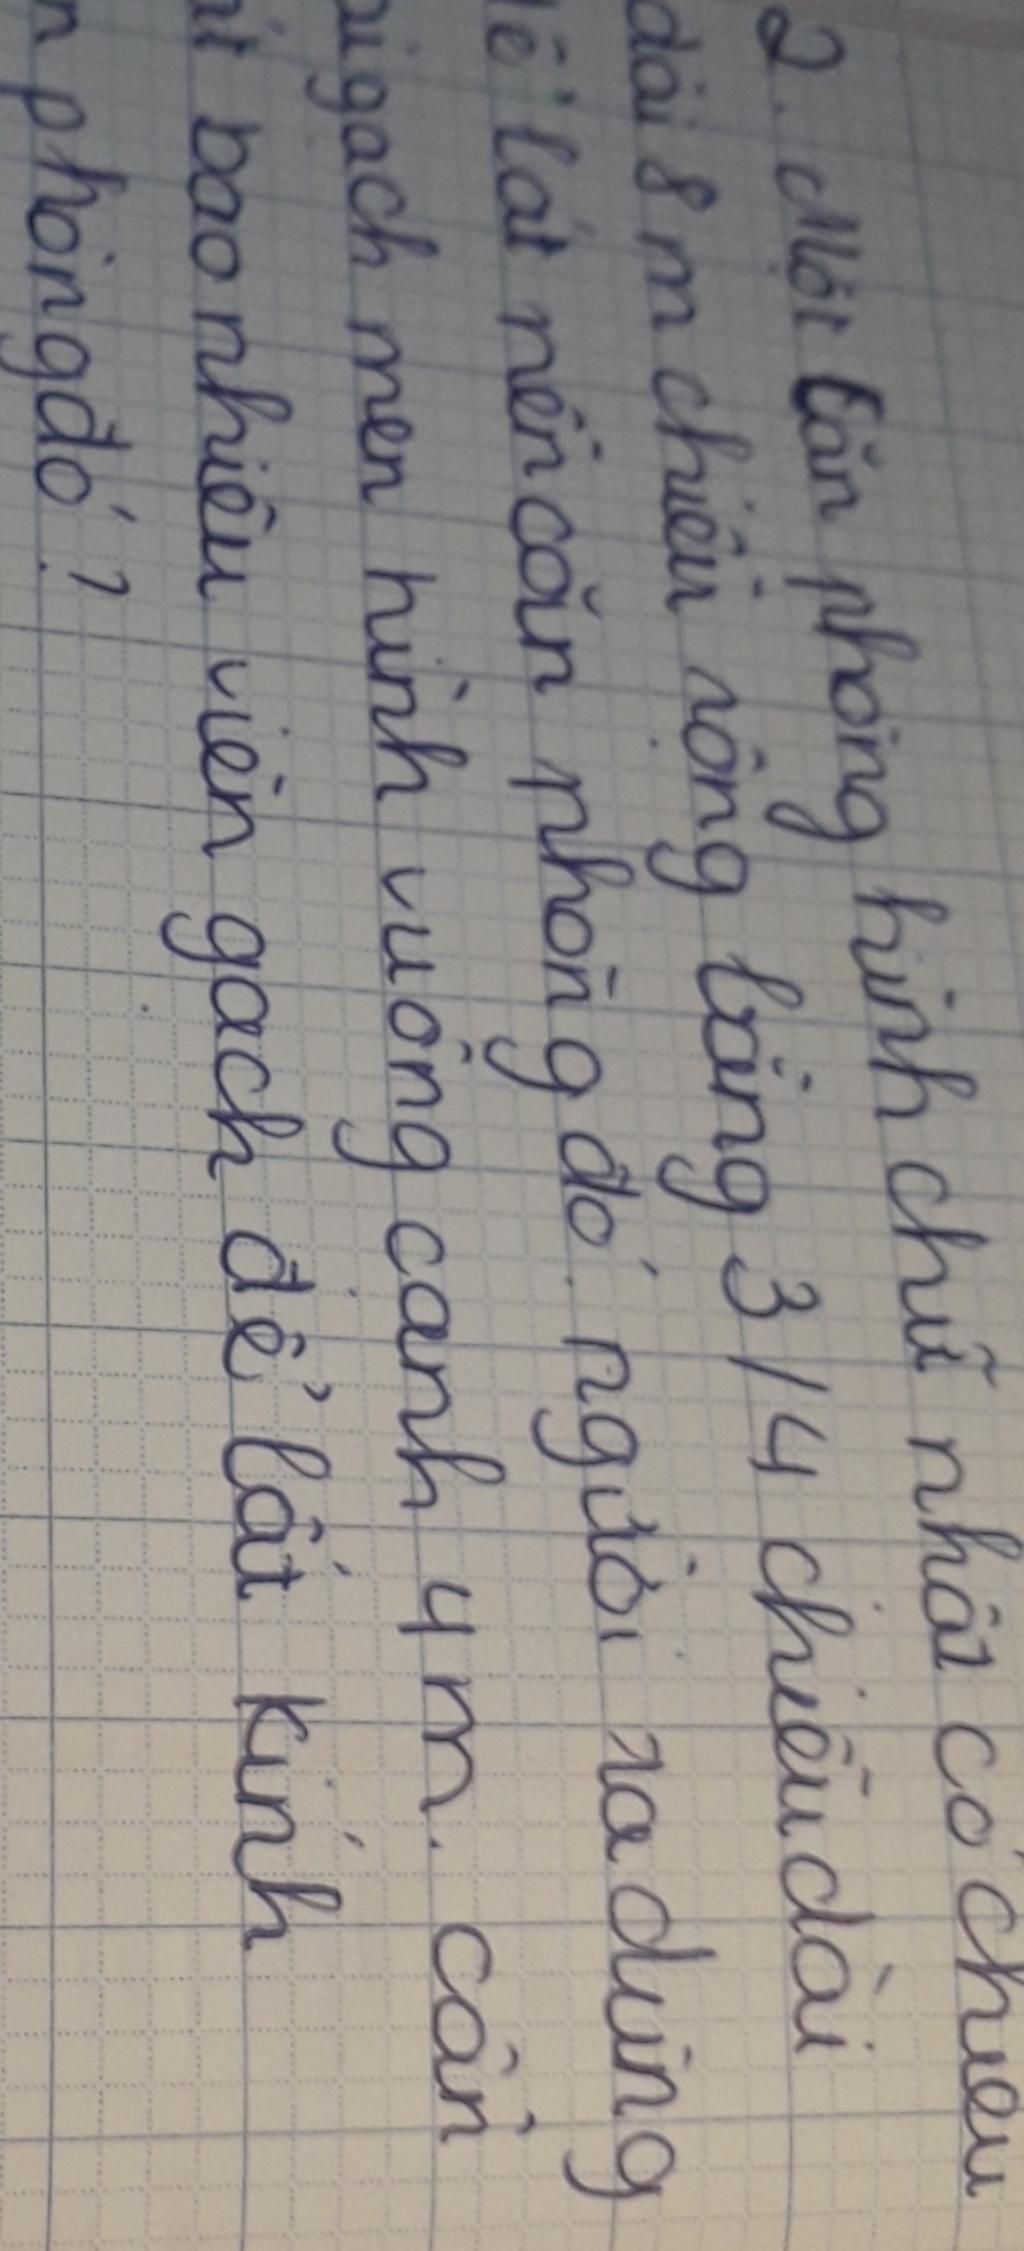 2. Một căn phòng hình chữ nhật có chiều
dài 8 m chiều rộng bằng 3/4 chiều dài
để lát nền căn phòng đó. người ta dùng
gạch men hình vuông cạnh 4m. cần
bao nhiêu viên gạch để lát kính
phòng đó?